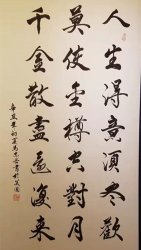 人生得意須尽歡
莫使金樽空對月
千金散盡還復来